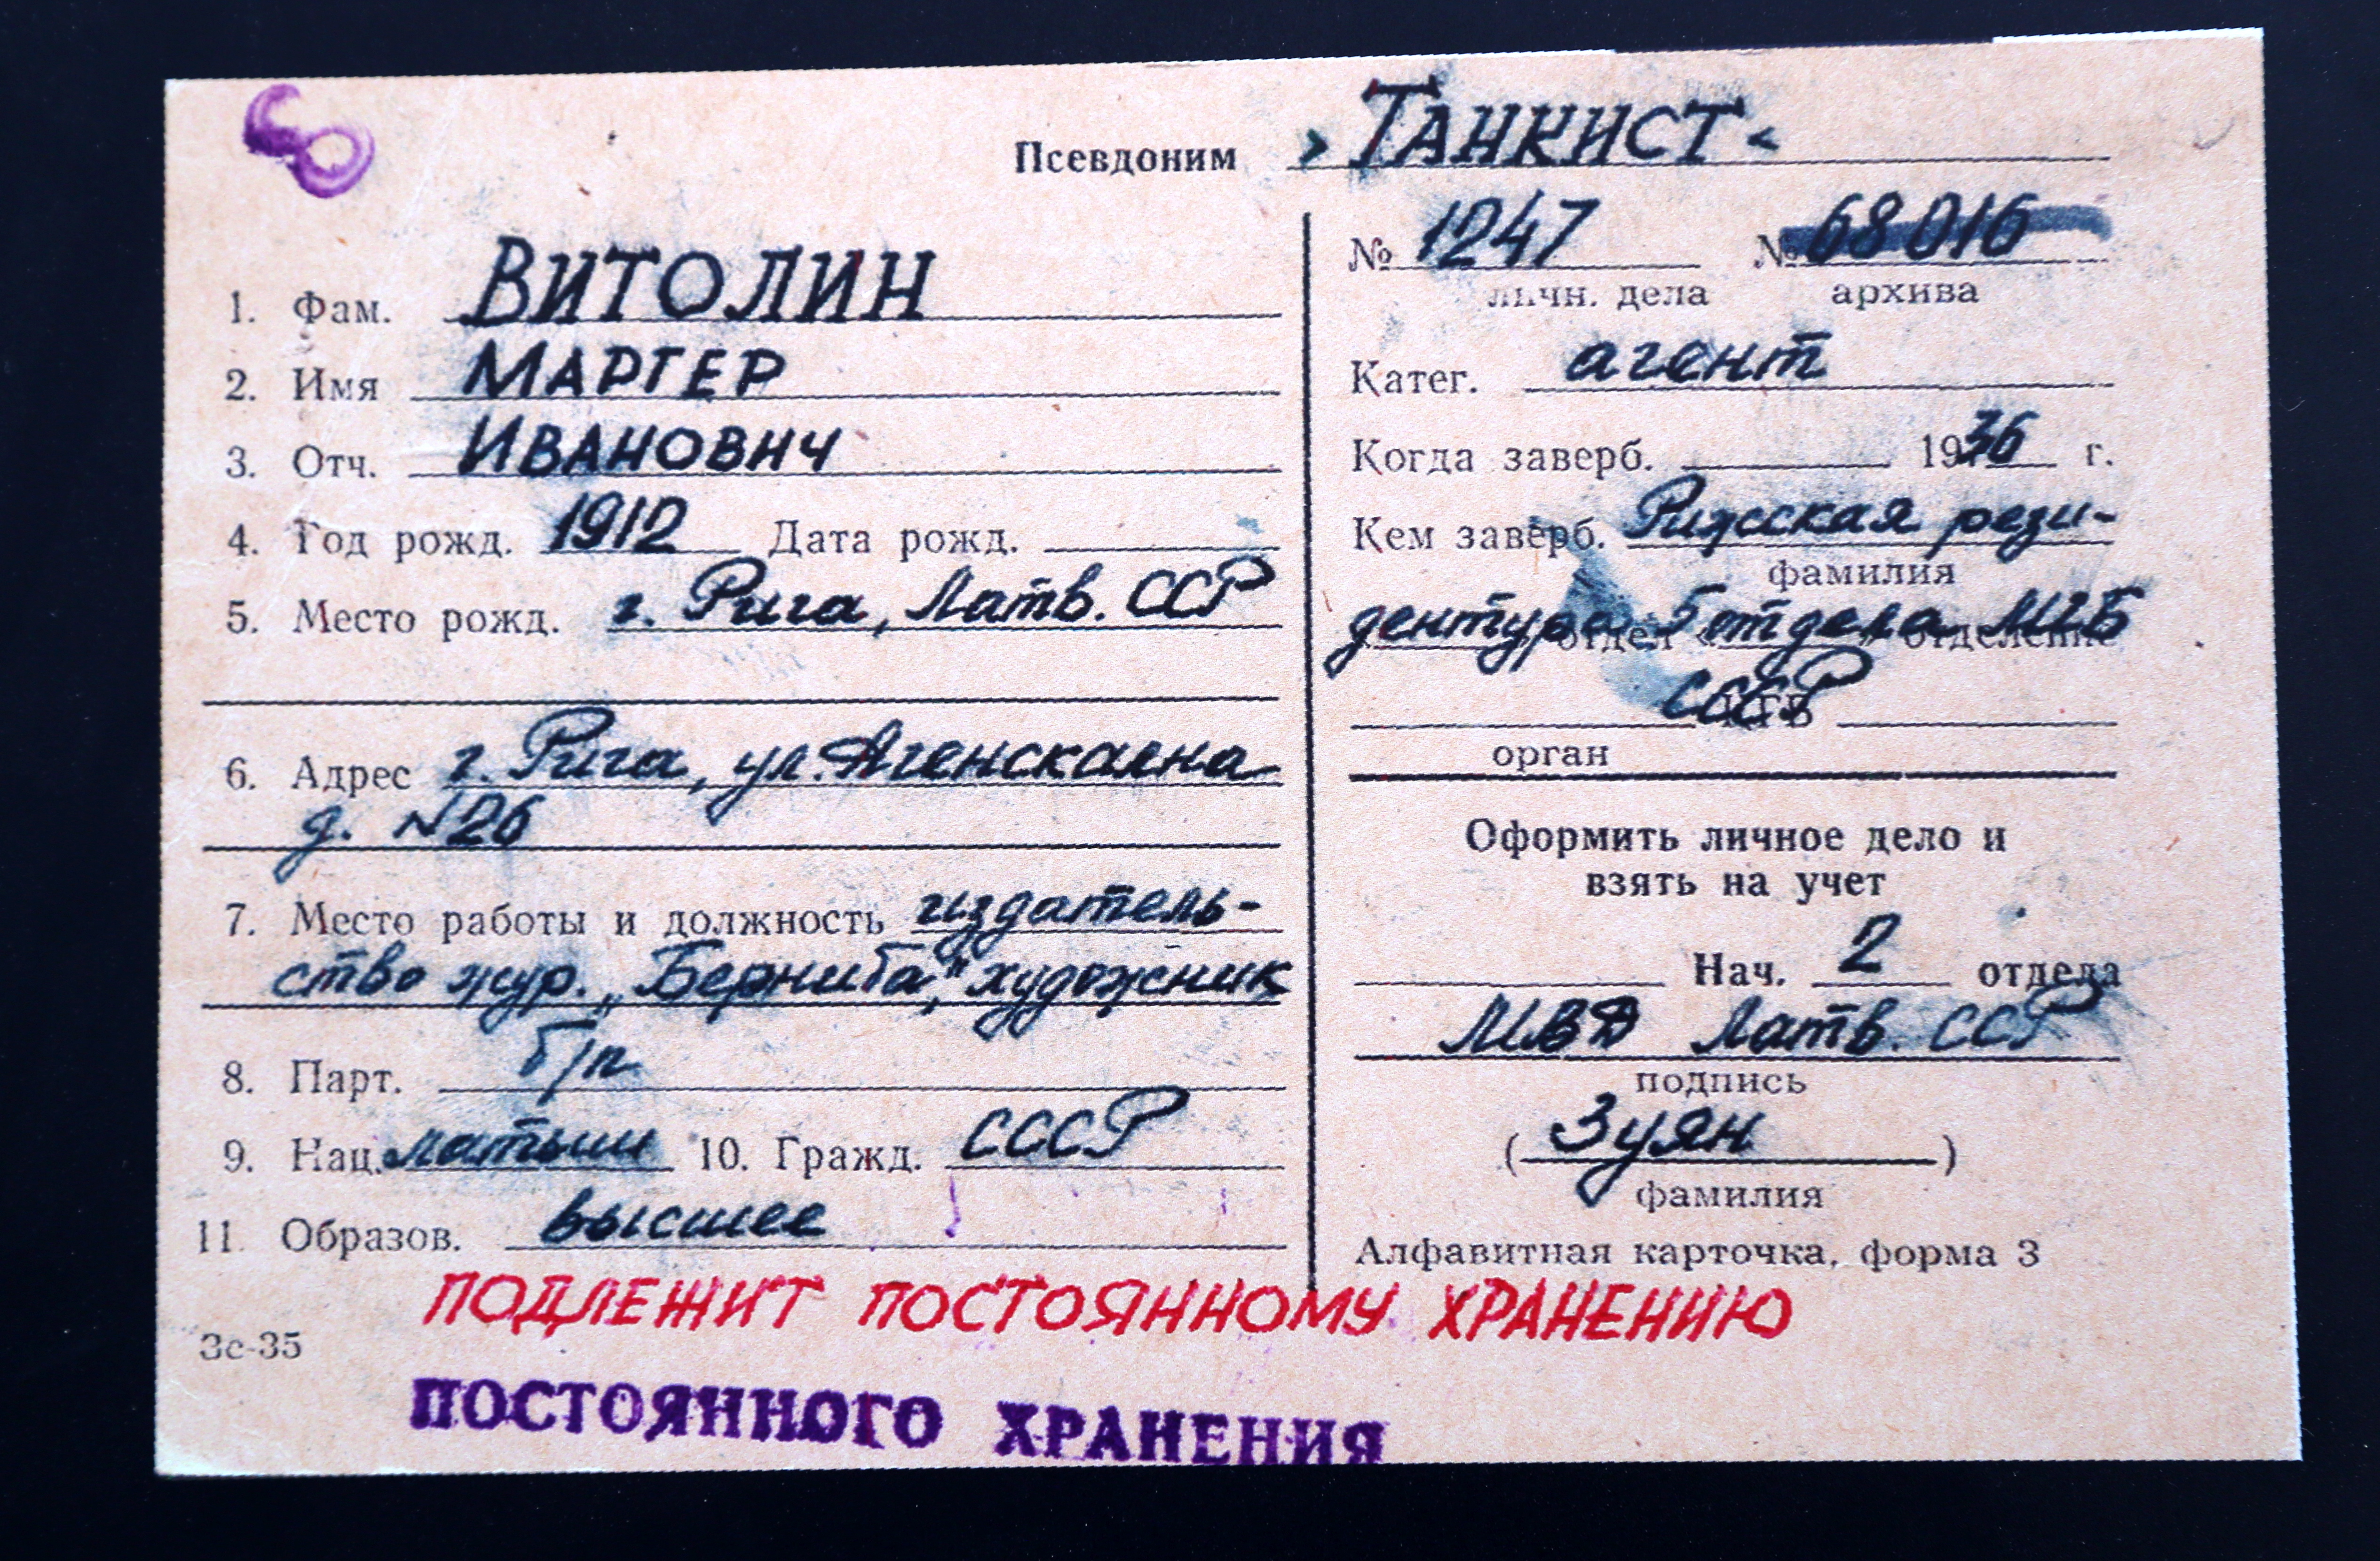 60
Псевдоним >ТАНКИСТ<
№ 1247 № 68016
личн. дела архива
1. Фам. ВИТОЛИН
2. Имя МАРГЕР
3. Отч. ИВАНОВИЧ
4. Год рожд. 1912 Дата рожд.
5. Место рожд. г. Рига, Латв. ССР
6. Адрес г. Рига, ул. Агенскална
д. №26
7. Место работы и должность издатель-
ство жур. „Берниба", художник
8. Парт. б/п
9. Нац. латыш 10. Гражд. СССР
11. Образов. высшее
Катег. агент
Когда заверб. 1936 г.
Кем заверб. Рижская рези-
фамилия
дентура 5 отдела МГБ
отдел отделение
СССР
орган
Оформить личное дело и
взять на учет
Нач. 2 отдела
МВД Латв. ССР
подпись
(Зуян)
фамилия
Алфавитная карточка, форма 3
ПОДЛЕЖИТ ПОСТОЯННОМУ ХРАНЕНИЮ
Зс-35
ПОСТОЯННОГО ХРАНЕНИЯ